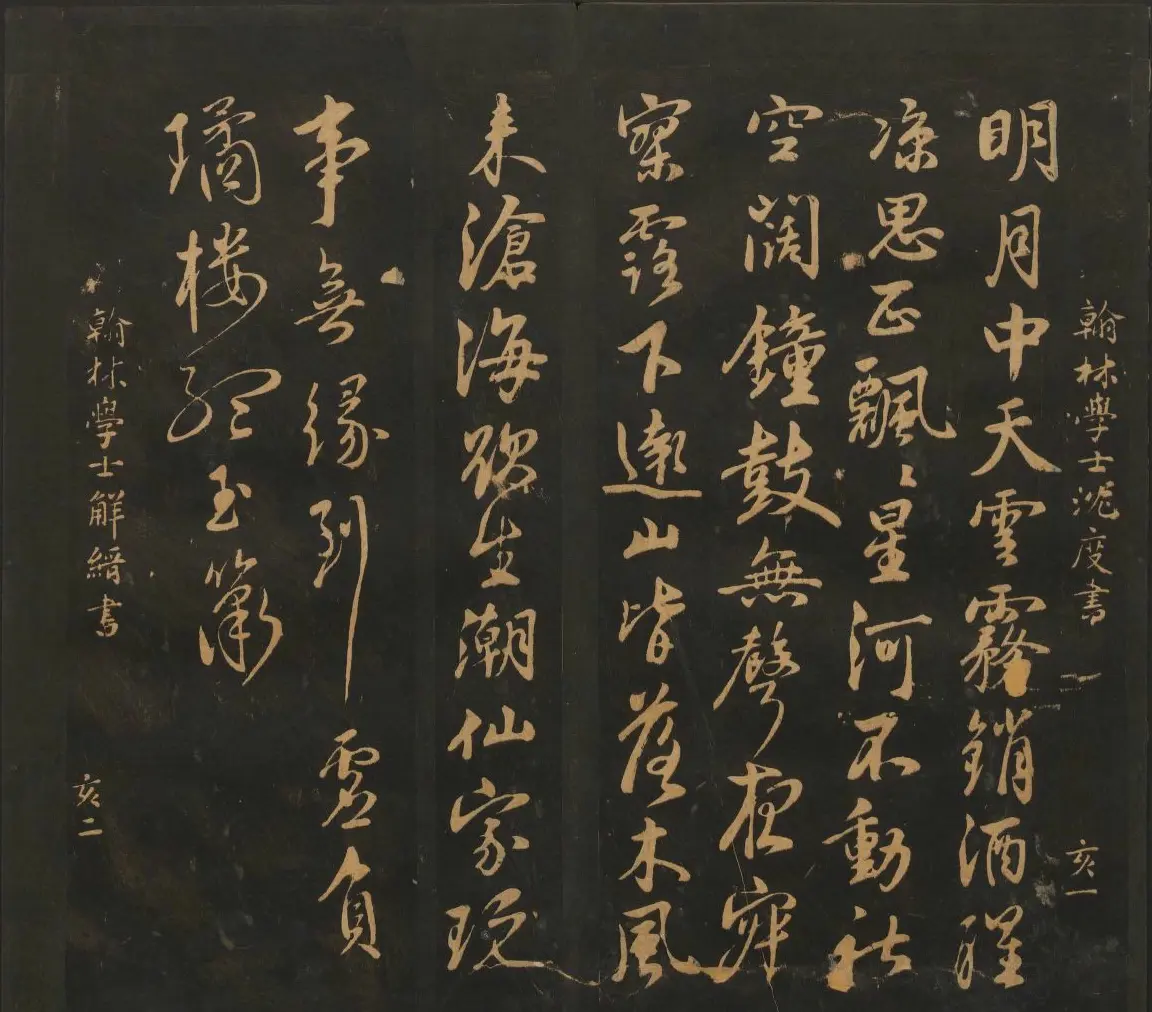 翰林學士沈度書
亥一
明月中天雲霧銷酒醒
凉思正飄〻星河不動秋
空闊鐘鼓無聲夜寂
寥露下遠山皆落木風
来滄海欲生潮仙家玩
事無緣到虛負
璚樓聽玉簫
翰林學士解縉書
亥二